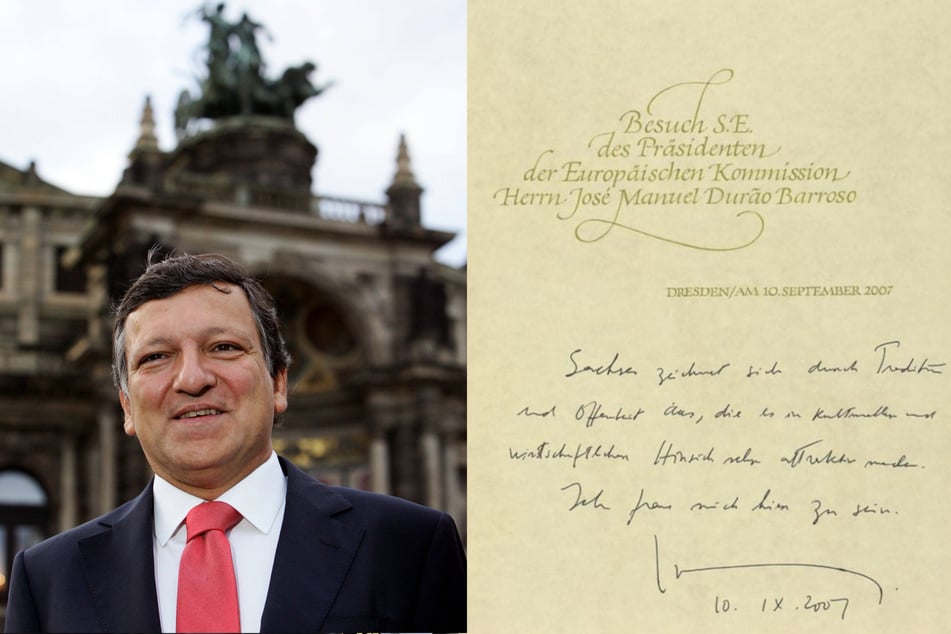 Besuch S.E.
des Präsidenten
der Europäischen Kommission
Herrn José Manuel Durão Barroso
DRESDEN/AM 10. SEPTEMBER 2007
Sachsen zeichnet sich durch Tradition
und Offenheit aus, die es in kulturellen und
wirtschaftlichen Hinsich sehr attraktiv machen.
Ich freue mich hier zu sein.
10. IX. 2007